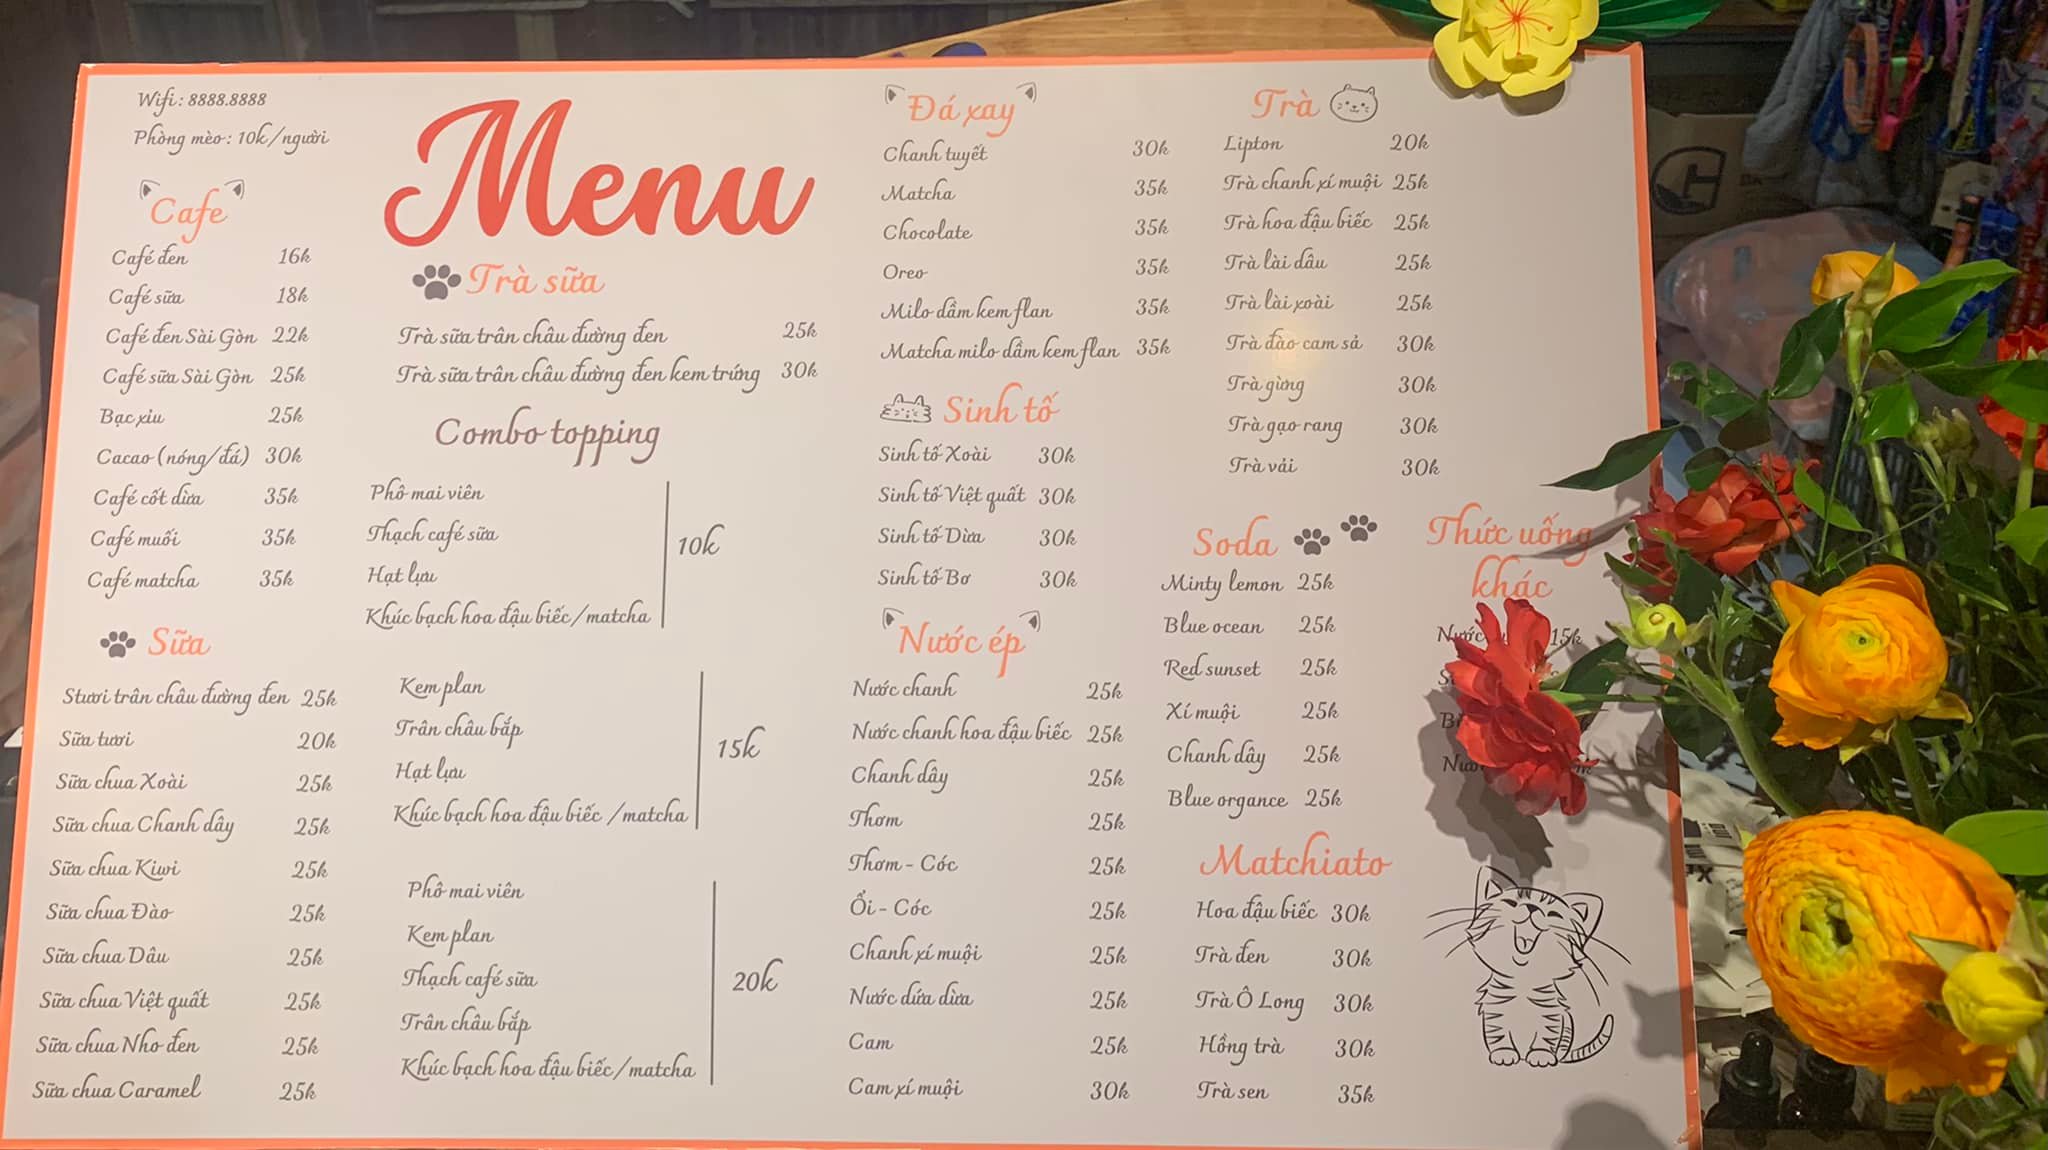 Wifi: 8888.8888
Phòng mèo: 10k/người
Menu
Cafe
Café đen 16k
Café sữa 18k
Café đen Sài Gòn 22k
Café sữa Sài Gòn 25k
Bạc xỉu 25k
Cacao (nóng/đá) 30k
Café cốt dừa 35k
Café muối 35k
Café matcha 35k
Sữa
Stươi trân châu đường đen 25k
Sữa tươi 20k
Sữa chua Xoài 25k
Sữa chua Chanh dây 25k
Sữa chua Kiwi 25k
Sữa chua Đào 25k
Sữa chua Dâu 25k
Sữa chua Việt quất 25k
Sữa chua Nho đen 25k
Sữa chua Caramel 25k
Trà sữa
Trà sữa trân châu đường đen 25k
Trà sữa trân châu đường đen kem trứng 30k
Combo topping
Phô mai viên
Thạch café sữa
Hạt lựu
Khúc bạch hoa đậu biếc/matcha
10k
Kem plan
Trân châu bắp
Hạt lựu
Khúc bạch hoa đậu biếc /matcha
15k
Phô mai viên
Kem plan
Thạch café sữa
Trân châu bắp
Khúc bạch hoa đậu biếc/matcha
20k
Đá xay
Chanh tuyết 30k
Matcha 35k
Chocolate 35k
Oreo 35k
Milo dầm kem flan 35k
Matcha milo dầm kem flan 35k
Sinh tố
Sinh tố Xoài 30k
Sinh tố Việt quất 30k
Sinh tố Dừa 30k
Sinh tố Bơ 30k
Nước ép
Nước chanh 25k
Nước chanh hoa đậu biếc 25k
Chanh dây 25k
Thơm 25k
Thơm - Cóc 25k
Ổi - Cóc 25k
Chanh xí muội 25k
Nước dứa dừa 25k
Cam 25k
Cam xí muội 30k
Trà
Lipton 20k
Trà chanh xí muội 25k
Trà hoa đậu biếc 25k
Trà lài dâu 25k
Trà lài xoài 25k
Trà đào cam sả 30k
Trà gừng 30k
Trà gạo rang 30k
Trà vải 30k
Soda
Minty lemon 25k
Blue ocean 25k
Red sunset 25k
Xí muội 25k
Chanh dây 25k
Blue organce 25k
Matchiato
Hoa đậu biếc 30k
Trà đen 30k
Trà Ô Long 30k
Hồng trà 30k
Trà sen 35k
Thức uống
khác
Nước 15k